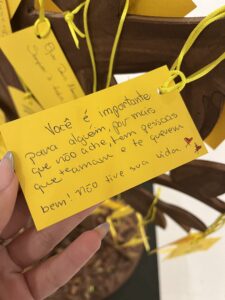 Você é importante
para alguém, por mais
que não ache, tem pessoas
que te amam e te querem
bem! não tire sua vida.